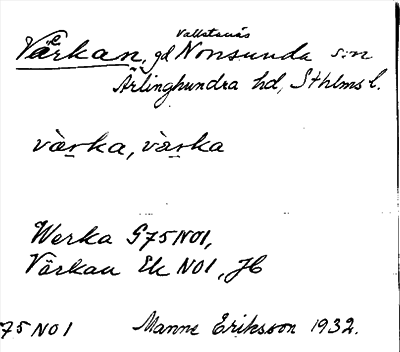 Vallstanäs
Värkan, gd Norrsunda sn
Ärlinghundra hd, Sthlms l.
vàrka, vàrka
Werka G75NO1,
Värkan Ek NO1, JC
75 NO1 Manne Eriksson 1932.